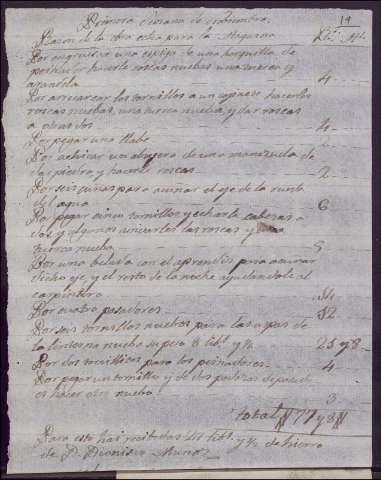 14
Primera semana de
Razon de la obra echa para la Maquina Rs. Ms.
Por engruesar una espiga de una horquilla de
peinador hacerle roscas nuebas una tuerca y
arandela 4
Por arrecorrer los tornillos a un hacerles
roscas nuebas, una tuerca nueba, y dar roscas
a otras dos 4
Por pegar una llabe
Por achicar un abujero de una manezuela de
y hacerle roscas 2
Por seis cuñas para acuñar el eje de la rueda
del agua 6
Por pegar cinco tornillos y echarle cabezas a
dos y algunos las roscas y una
tuerca nueba 5
Por una belada con el aprendiz para acuñar
dicho eje, y el resto de la noche ayudandole al
carpintero 14
Por cuatro pasadores 12
Por seis tornillos nuebos para las de
la linterna nueba su peso 8 lib. y ½ 25 y 8
Por dos tornillitos para los peinadores 4
Por pegar un tornillo y de dos pedazos
el hacer otro nuebo 3
total 77 y 8
Para esto hai recibidas 41 lib. y ½ de hierro
de D. Dionisio Muñoz